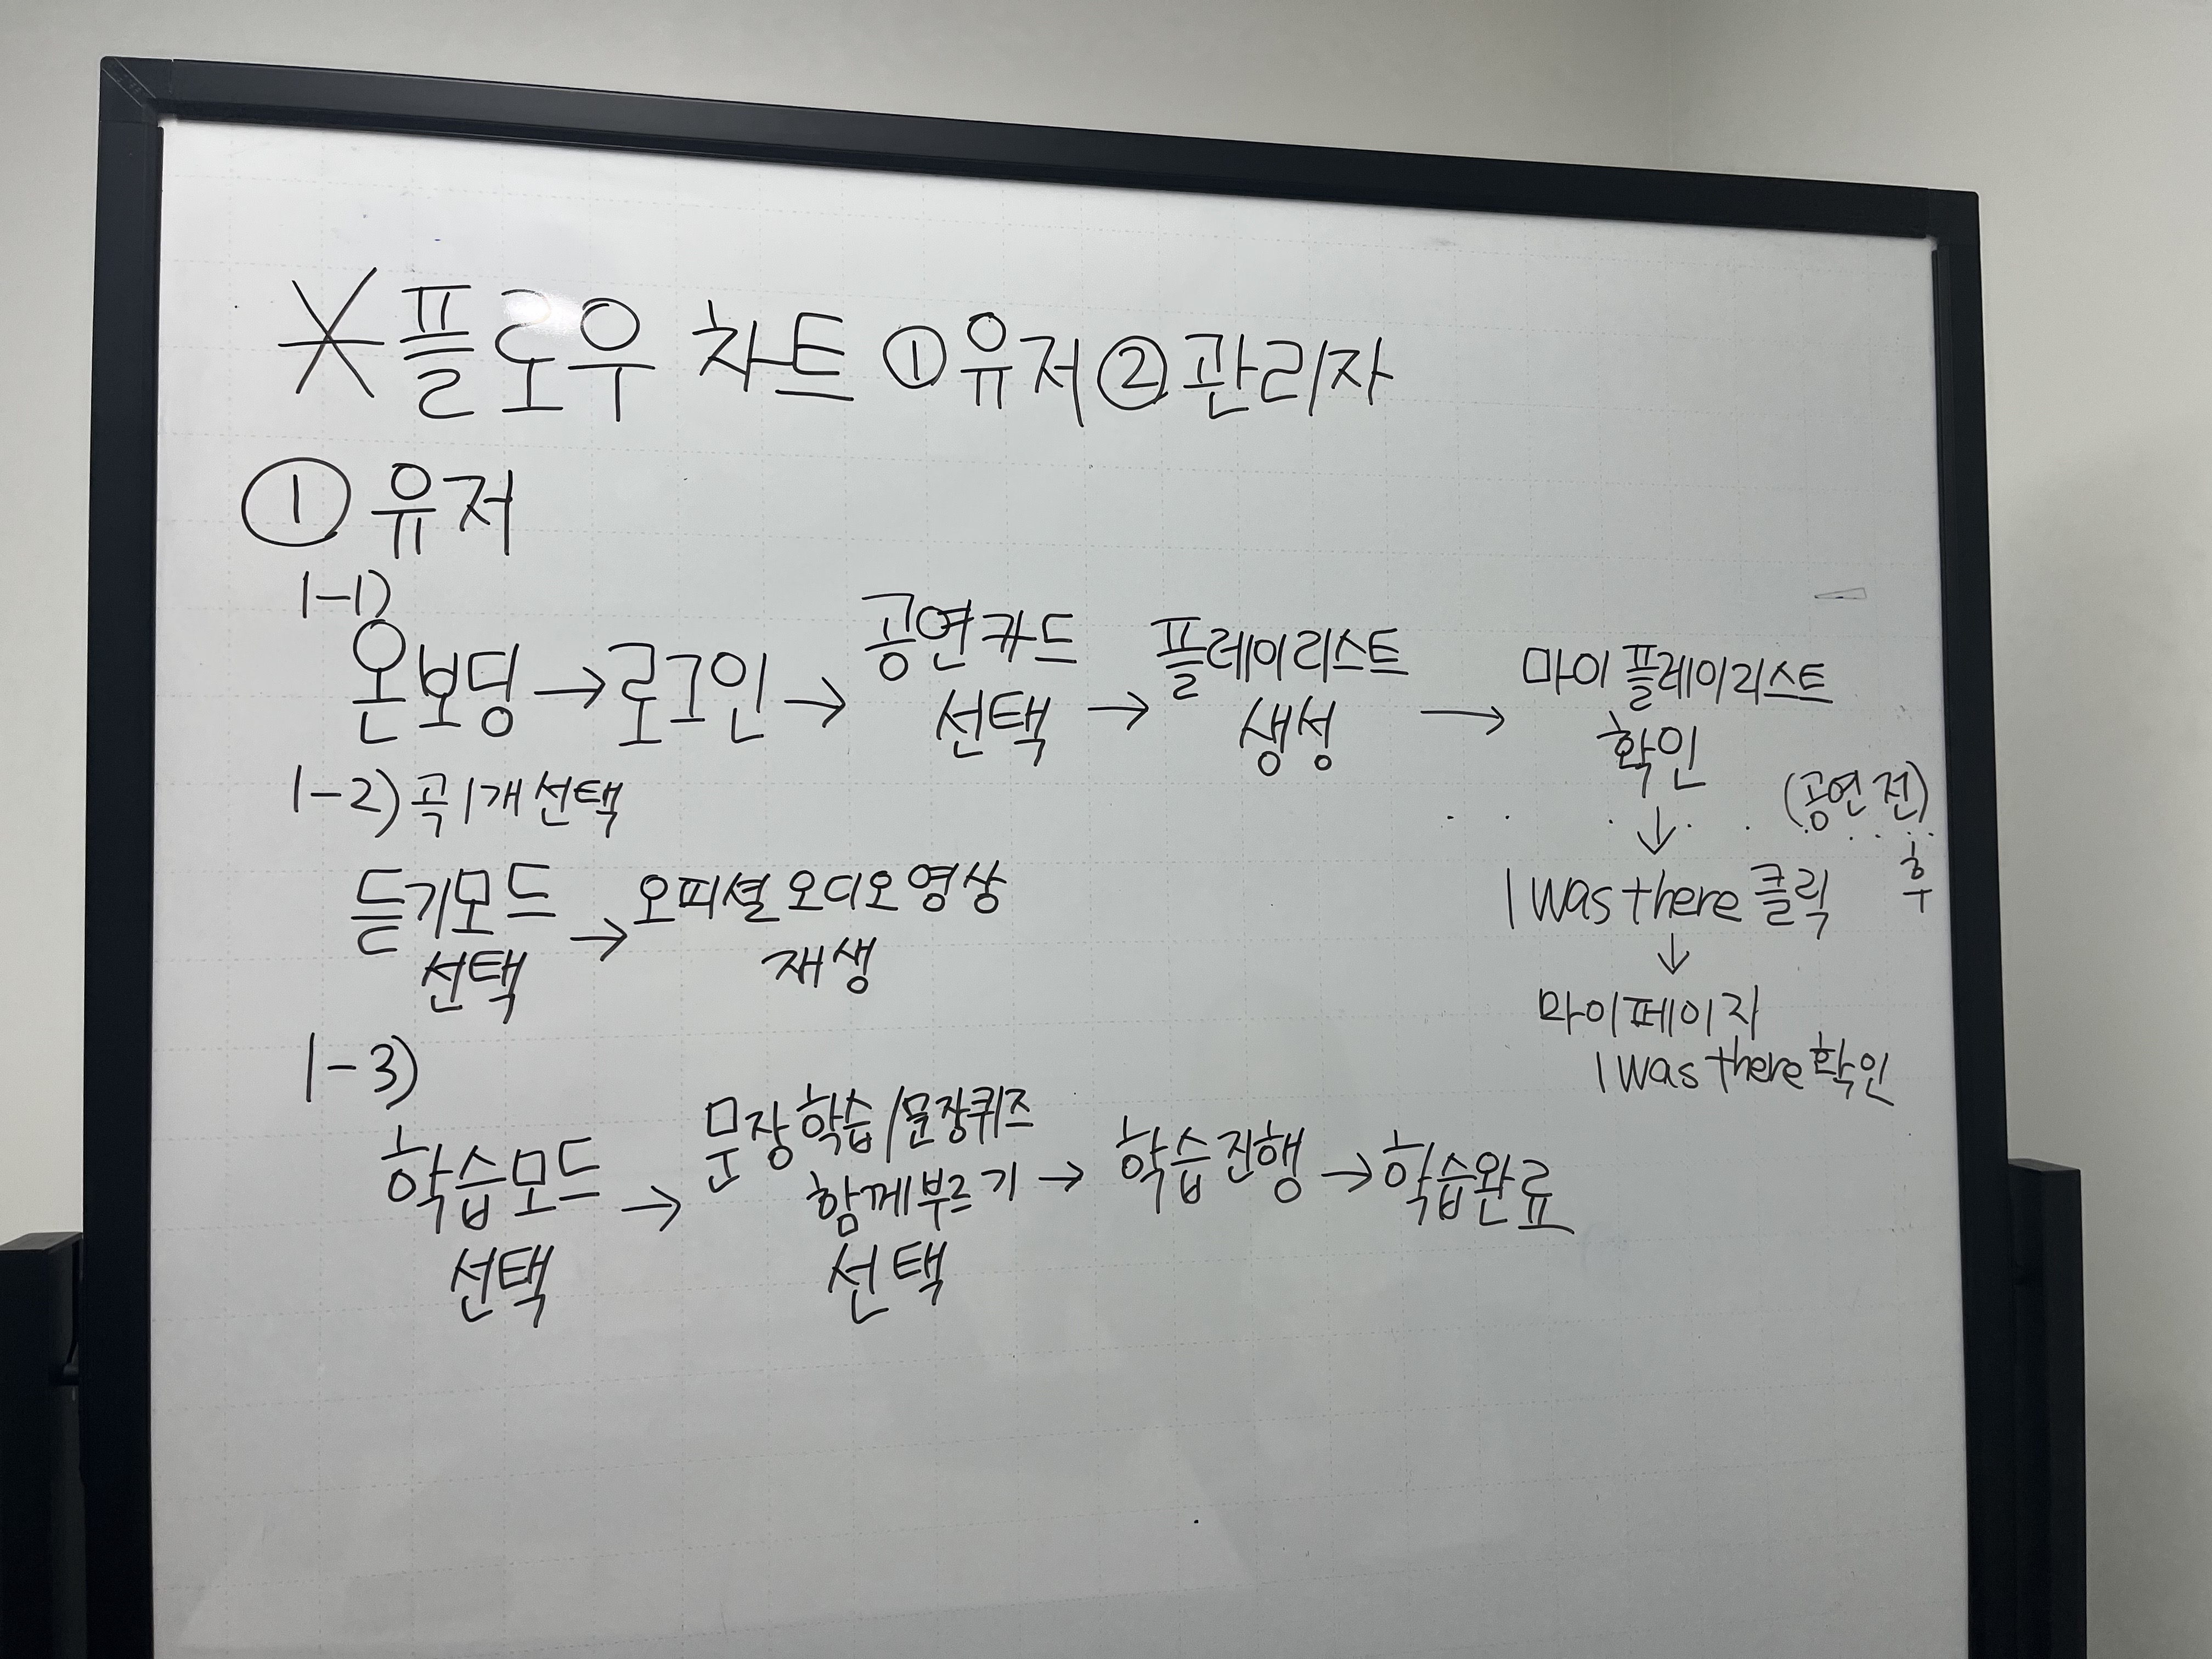 *플로우 차트 ①유저②관리자
① 유저
1-1)
온보딩 → 로그인 → 공연카드 선택 → 플레이리스트 생성 → 마이 플레이리스트 확인
(공연 전)
↓
후
I was there 클릭
↓
마이페이지
I was there 확인
1-2) 곡1개 선택
듣기모드 선택 → 오피셜 오디오 영상 재생
1-3)
학습모드 선택 → 문장학습/문장퀴즈 함께부르기 선택 → 학습진행 → 학습완료